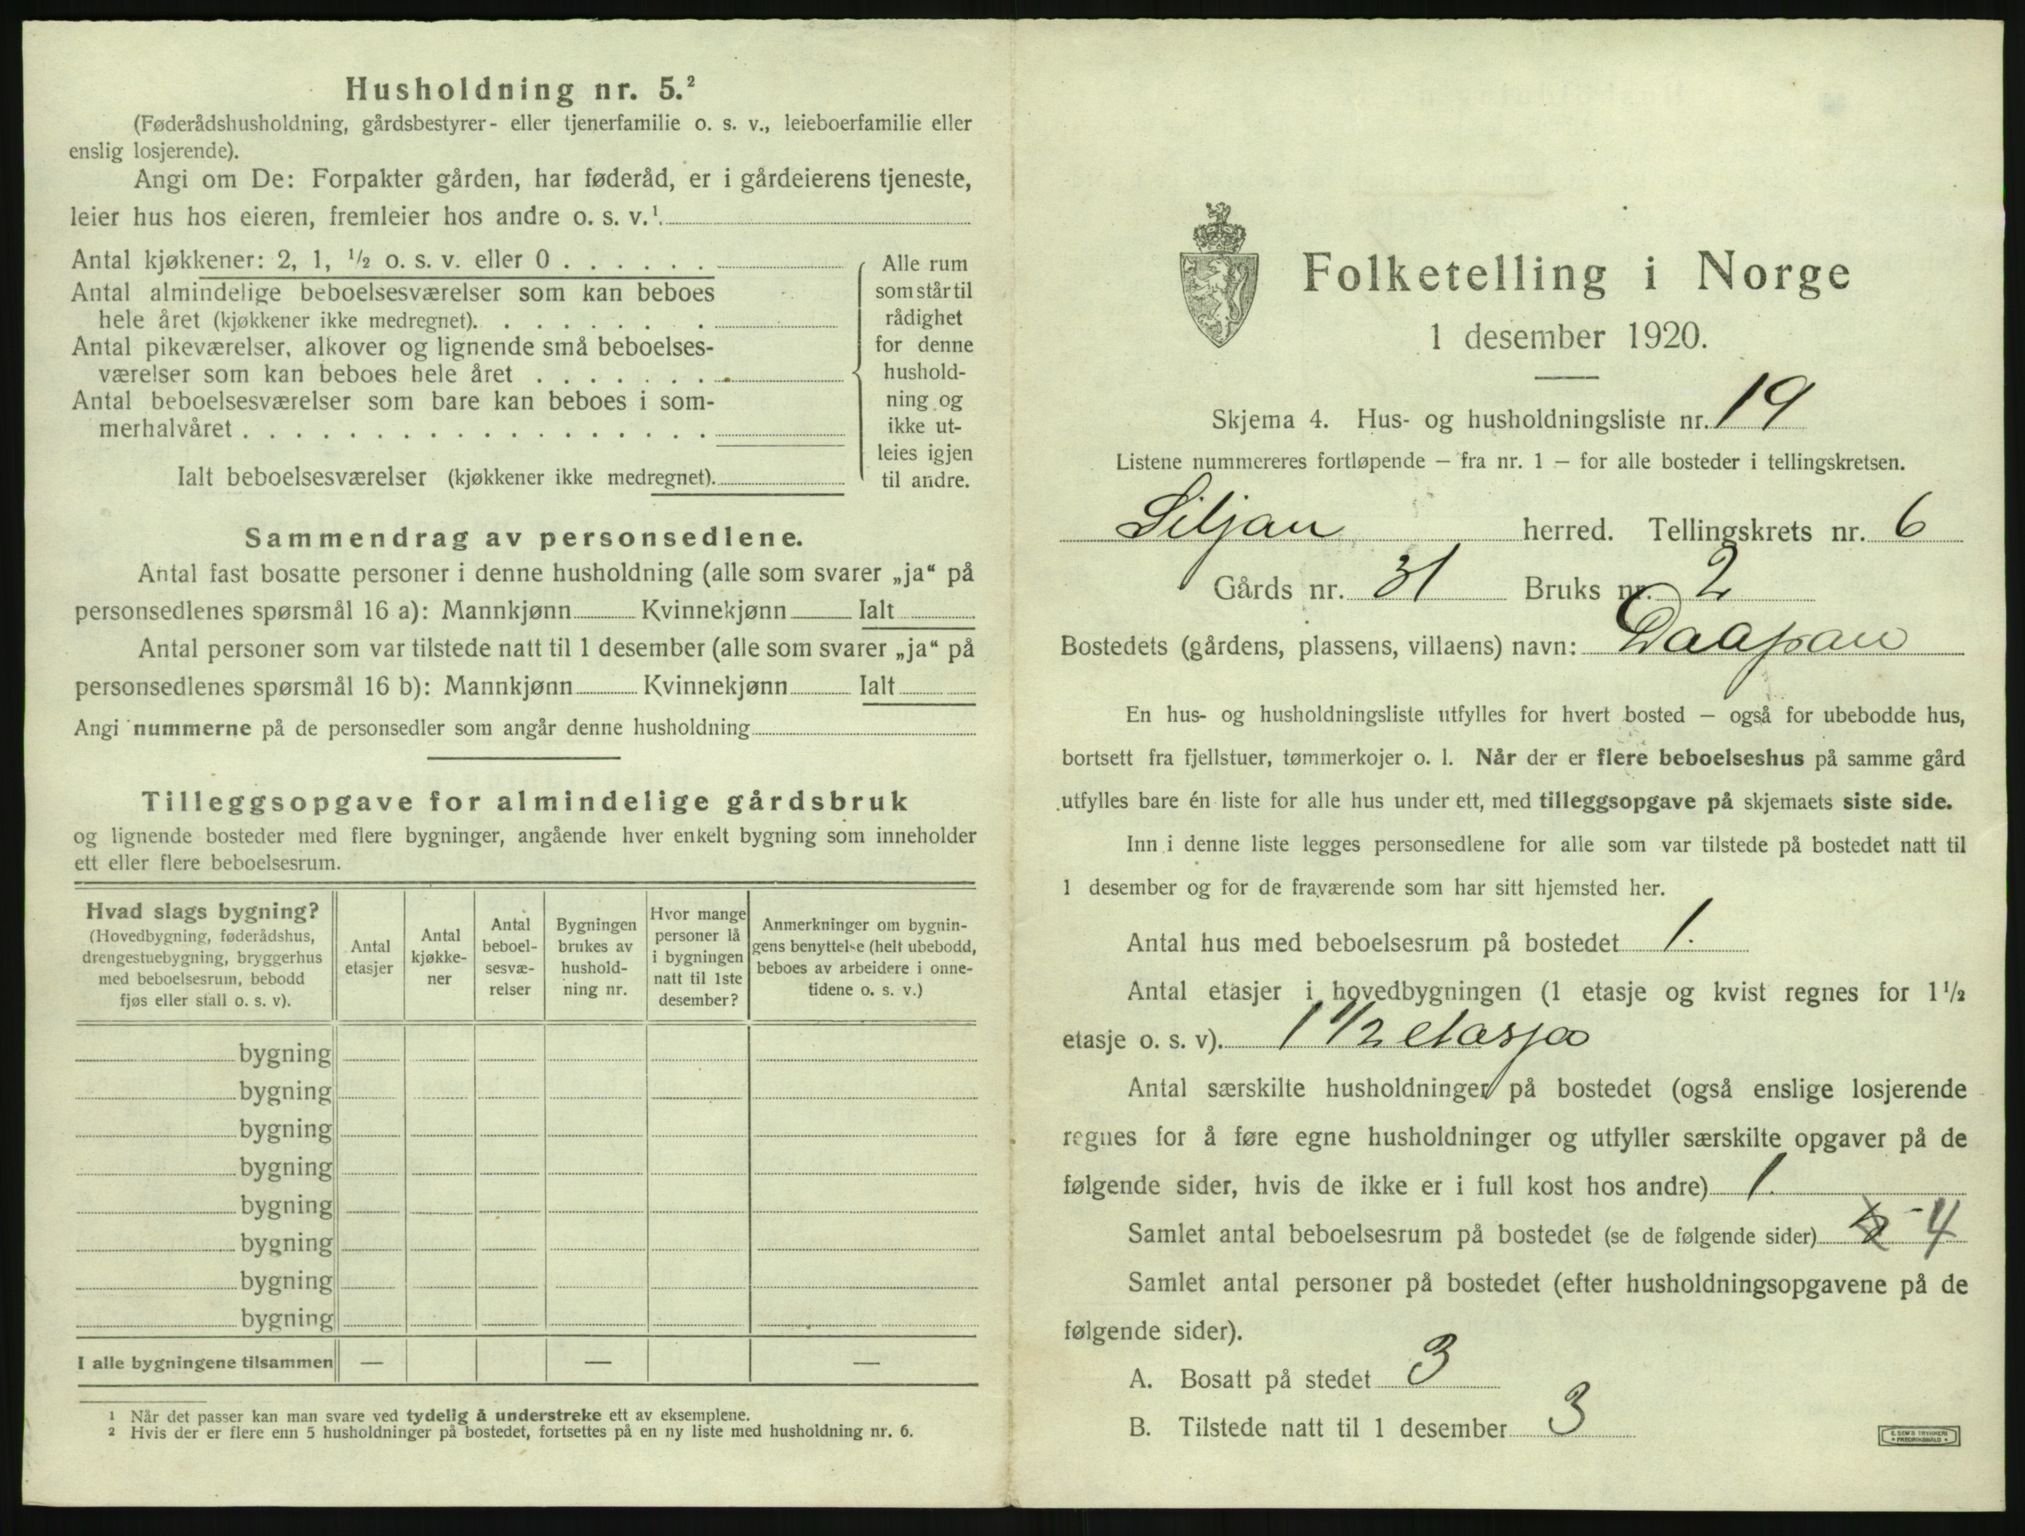 Husholdning nr. 5.²
(Føderådshusholdning, gårdsbestyrer- eller tjenerfamilie o. s. v., leieboerfamilie eller
enslig losjerende).
Angi om De: Forpakter gården, har føderåd, er i gårdeierens tjeneste,
leier hus hos eieren, fremleier hos andre o. s. v.¹
Antal kjøkkener: 2, 1, ½ o. s. v. eller 0 . . . . . .
Antal almindelige beboelsesværelser som kan beboes
hele året (kjøkkener ikke medregnet). . . . . . . . .
Antal pikeværelser, alkover og lignende små beboelses-
værelser som kan beboes hele året . . . . . . .
Antal beboelsesværelser som bare kan beboes i som-
merhalvåret . . . . . . . . . . . . . . . . . .
Ialt beboelsesværelser (kjøkkener ikke medregnet).
Alle rum
som står til
rådighet
for denne
hushold-
ning og
ikke ut-
leies igjen
til andre.
Sammendrag av personsedlene.
Antal fast bosatte personer i denne husholdning (alle som svarer „ja“ på
personsedlenes spørsmål 16 a): Mannkjønn Kvinnekjønn Ialt
Antal personer som var tilstede natt til 1 desember (alle som svarer „ja“ på
personsedlenes spørsmål 16 b): Mannkjønn Kvinnekjønn Ialt
Angi nummerne på de personsedler som angår denne husholdning
Tilleggsopgave for almindelige gårdsbruk
og lignende bosteder med flere bygninger, angående hver enkelt bygning som inneholder
ett eller flere beboelsesrum.
Hvad slags bygning?
(Hovedbygning, føderådshus,
drengestuebygning, bryggerhus
med beboelsesrum, bebodd
fjøs eller stall o. s. v).
Antal
etasjer
Antal
kjøkke-
ner
Antal
beboel-
sesvæ-
relser
Bygningen
brukes av
hushold-
ning nr.
Hvor mange
personer lå
i bygningen
natt til 1ste
desember?
Anmerkninger om bygnin-
gens benyttelse (helt ubebodd,
beboes av arbeidere i onne-
tidene o. s. v.)
bygning
bygning
bygning
bygning
bygning
bygning
bygning
bygning
I alle bygningene tilsammen — — —
¹ Når det passer kan man svare ved tydelig å understreke ett av eksemplene.
² Hvis der er flere enn 5 husholdninger på bostedet, fortsettes på en ny liste med husholdning nr. 6.
Folketelling i Norge
1 desember 1920.
Skjema 4. Hus- og husholdningsliste nr. 19
Listene nummereres fortløpende — fra nr. 1 — for alle bosteder i tellingskretsen.
Siljan herred. Tellingskrets nr. 6
Gårds nr. 31 Bruks nr. 2
Bostedets (gårdens, plassens, villaens) navn: Daapan
En hus- og husholdningsliste utfylles for hvert bosted — også for ubebodde hus,
bortsett fra fjellstuer, tømmerkojer o. l. Når der er flere beboelseshus på samme gård
utfylles bare én liste for alle hus under ett, med tilleggsopgave på skjemaets siste side.
Inn i denne liste legges personsedlene for alle som var tilstede på bostedet natt til
1 desember og for de fraværende som har sitt hjemsted her.
Antal hus med beboelsesrum på bostedet 1.
Antal etasjer i hovedbygningen (1 etasje og kvist regnes for 1½
etasje o. s. v). 1 1/2 etasje
Antal særskilte husholdninger på bostedet (også enslige losjerende
regnes for å føre egne husholdninger og utfyller særskilte opgaver på de
følgende sider, hvis de ikke er i full kost hos andre) 1.
Samlet antal beboelsesrum på bostedet (se de følgende sider) - 4
Samlet antal personer på bostedet (efter husholdningsopgavene på de
følgende sider).
A. Bosatt på stedet 3
B. Tilstede natt til 1 desember 3
E. SEM'S TRYKKERI
FREDRIKSHALD